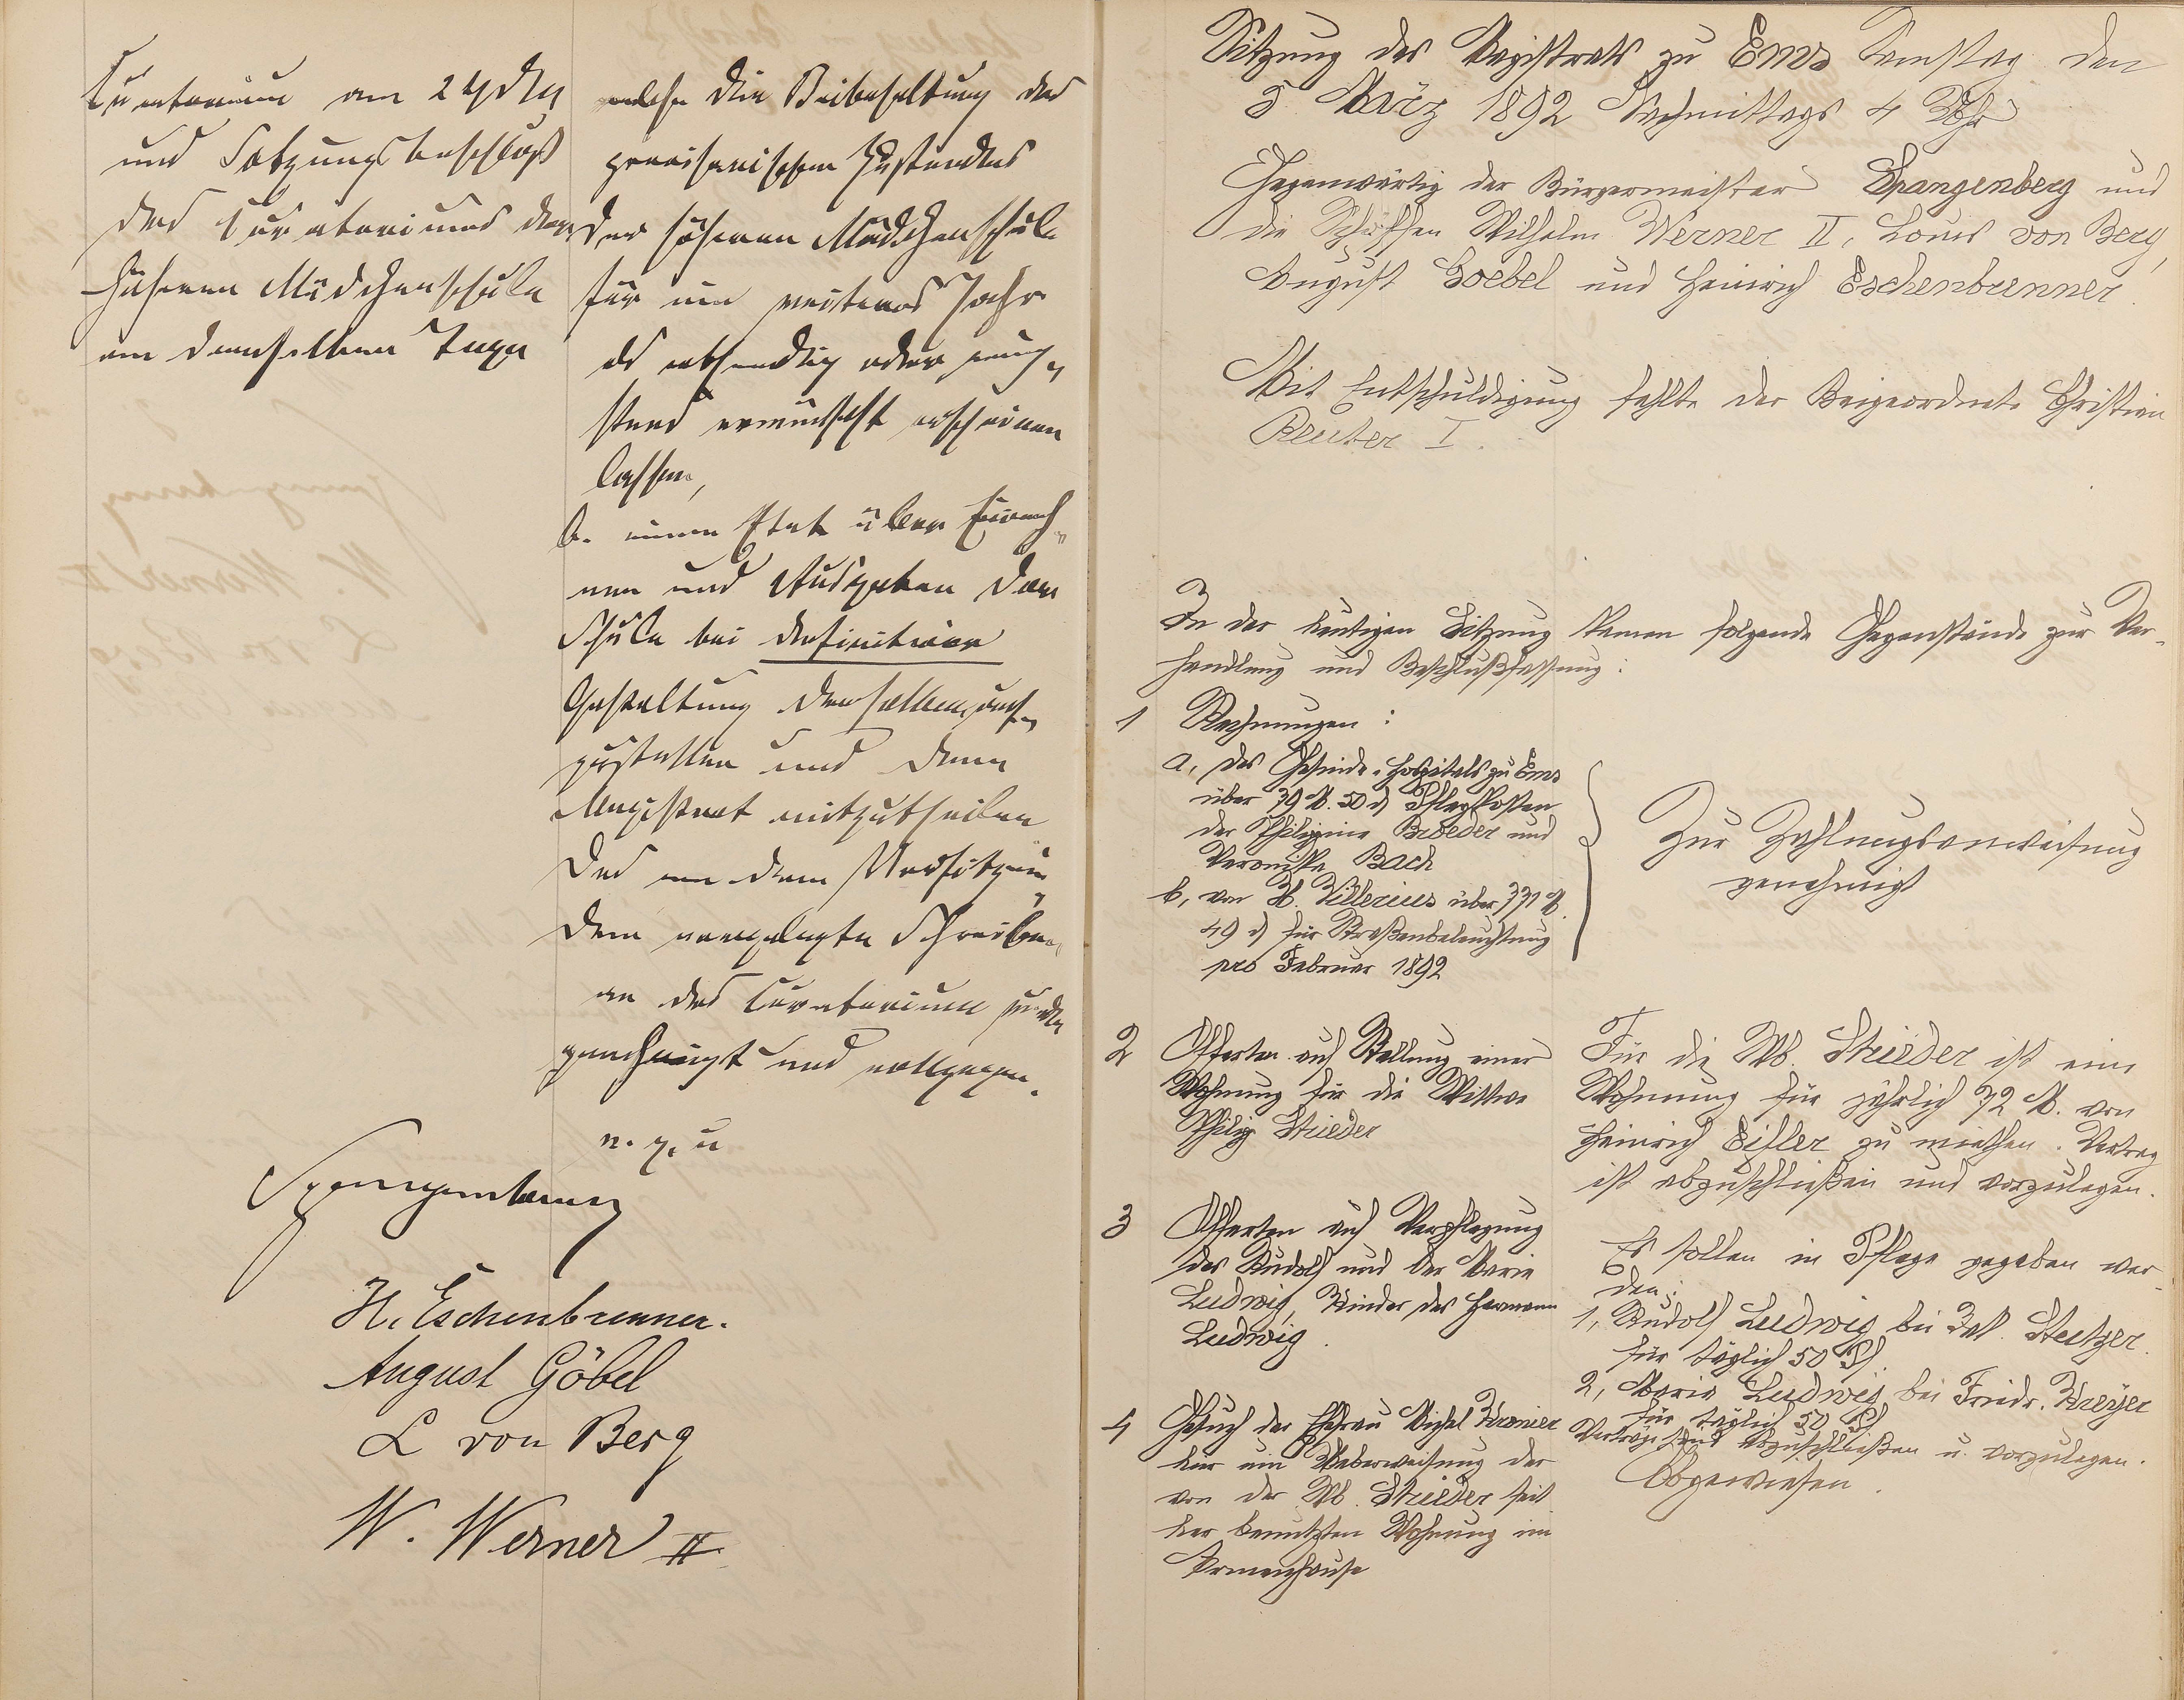 Curatorium am 24 dts
und Satzungsbeschluß
des Curatoriums der
höheren Mädchenschule
von demselben Tage
welche die Beibehaltung des
provisorischen Zustandes
der höheren Mädchenschule
für ein weiteres Jahr
als nothwendig oder wenig„
stens erwünscht erscheinen
lassen,
b. einen Etat über Einnah„
men und Ausgaben der
Schule bei definitiver
Gestaltung derselben auf„
zustellen und dem
Magistrat mitzutheilen
Das von dem Vorsitzen„
den vorgelegte Schreiben
an das Curatorium wurde
genehmigt und vollzogen.
v. g. u
Spangenberg
H. Eschenbrenner.
August Göbel
L von Berg
W. Werner II
Sitzung des Magistrats zu Ems Samstag den
5 März 1892 Nachmittags 4 Uhr
Gegenwärtig der Bürgermeister Spangenberg und
die Schöffen Wilhelm Werner II, Louis von Berg,
August Goebel und Heinrich Eschenbrenner.
Mit Entschuldigung fehlte der Beigeordnete Christian
Reuter I.
In der heutigen Sitzung kamen folgende Gegenstände zur Ver-
handlung und Beschlußfassung:
1 Rechnungen:
a, des Gesinde-Hospitals zu Ems
über 39 M. 50 d Pflegekosten
der Philippine Broeder und
Veronika Bach
b, von H. Villerius über 331 M.
49 d für Straßenbeleuchtung
pro Februar 1892
Zur Zahlungsanweisung
genehmigt
2 Offerten auf Stellung einer
Wohnung für die Wittwe
Philip Strieder
Für die Wb. Strieder ist eine
Wohnung für jährlich 72 M. von
Heinrich Eisler zu miethen. Vertrag
ist abzuschließen und vorzulegen.
3 Offerten auf Verpflegung
des Rudolf und der Marie
Ludwig, Kinder des Hermann
Ludwig.
Es sollen in Pflege gegeben wer-
den:
1, Rudolf Ludwig bei Stutzer.
für täglich 50 Pf.
2, Marie Ludwig bei Friedr. Kreyer
für täglich 50 Pf
Verträge sind abzuschließen u. vorzulegen.
4 Gesuch der Ehefrau Michel Kronier
hier um Ueberweisung der
von der Wb. Strieder seit
her benutzten Wohnung im
Armenhause
Abgewiesen.